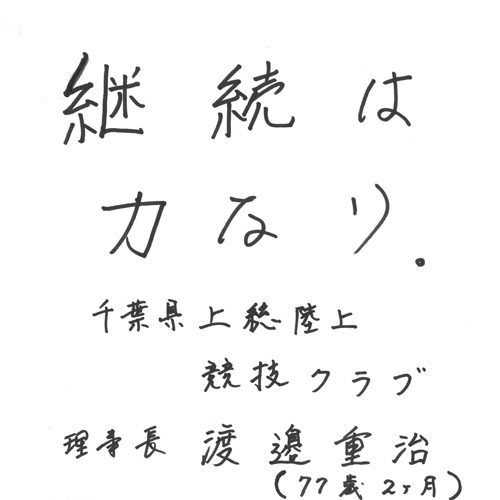 継続は
力なり.
千葉県上総陸上
競技クラブ
理事長 渡邉重治
(77歳2ヶ月)